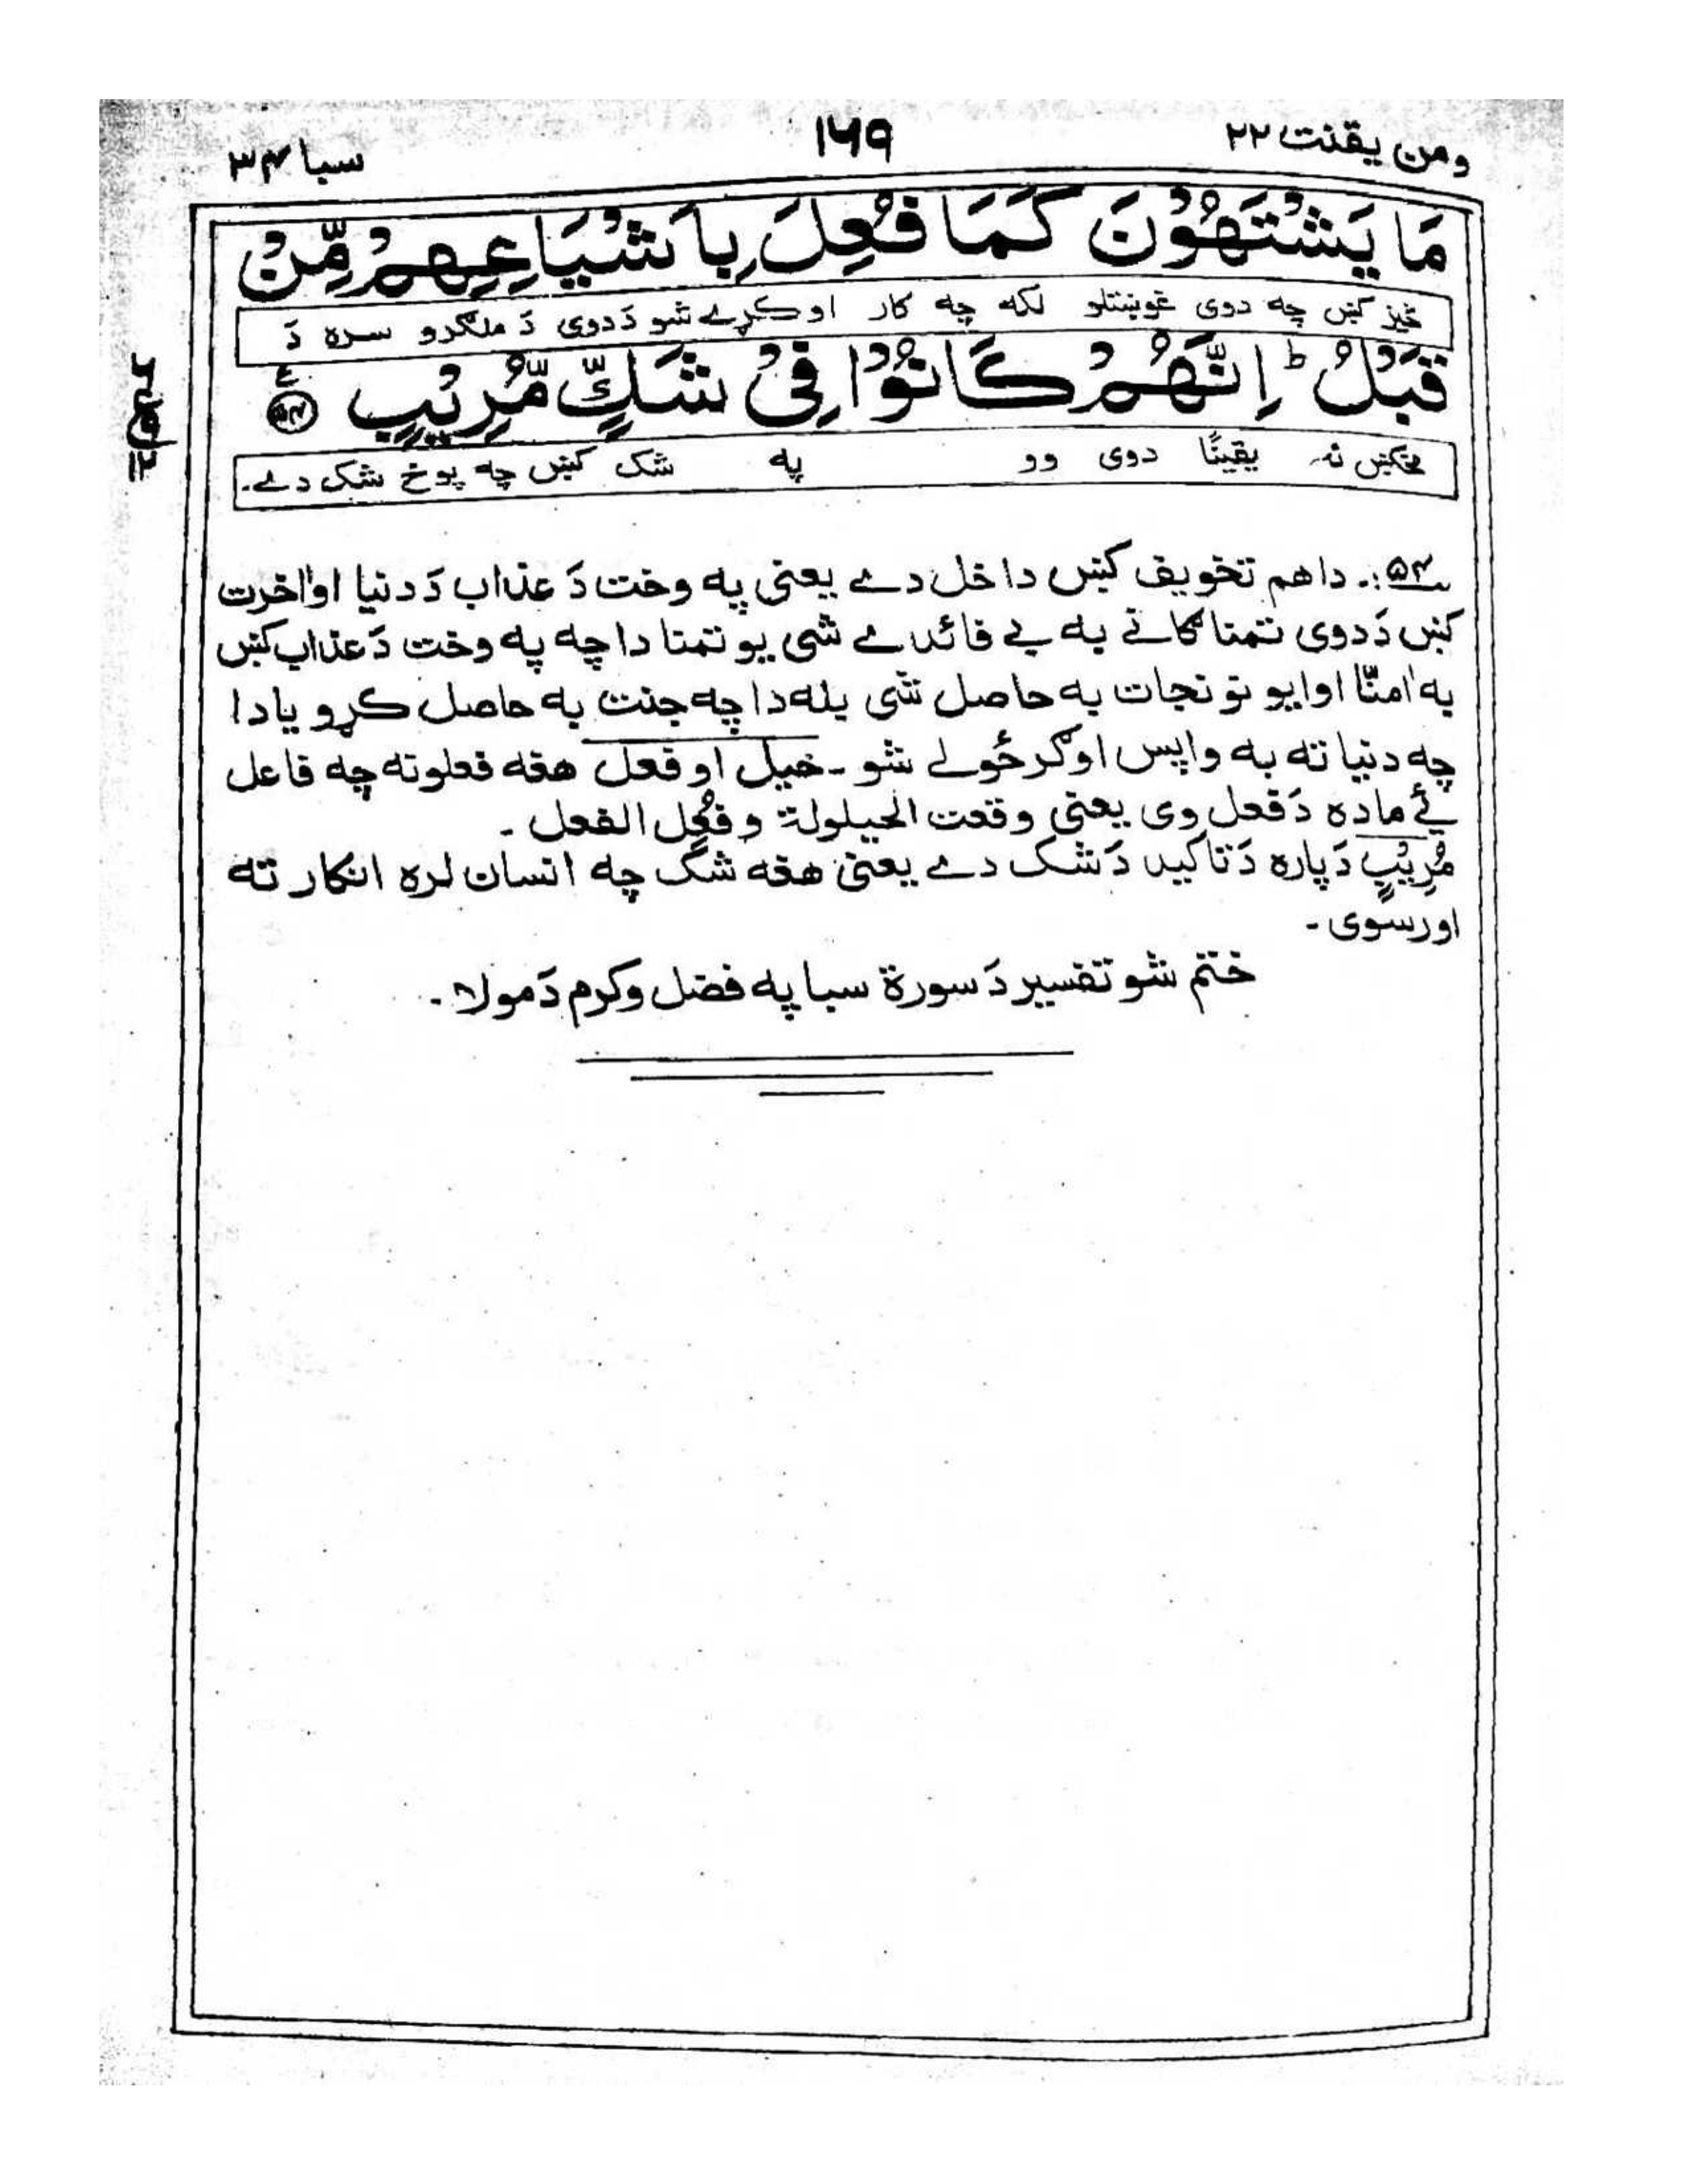 ومن یقنت ۲۲
۱۶۹
سبا ۳۴
مَا يَشْتَهُوْنَ كَمَا فُعِلَ بِاَشْيَاعِهِمْ مِّنْ
څیز کښ چه دوی غوښتلو لکه چه کار اوکړے شو دَ دوی دَ ملګرو سره دَ
قَبْلُ ؕ اِنَّهُمْ كَانُوْا فِيْ شَكٍّ مُّرِيْبٍ ۵۴
مخکښ نه یقینًا دوی وو په شک کښ چه پوخ شک دے.
۵۴:. دا هم تخویف کښ داخل دے یعنی په وخت دَ عذاب دَ دنیا او اٰخرت
کښ دَ دوی تمناګانے به بے فائدے شی یو تمنا دا چه په وخت دَ عذاب کښ
به اٰمنّا اوایو نو نجات به حاصل شی بله دا چه جنت به حاصل کړو یا دا
چه دنیا ته به واپس اوګرځولے شو ـ حیل او فعل هغه فعلو ته چه فاعل
ئے ماده دَ فعل وی یعنی وقعت الحیلولة وفُعِل الفعل ـ
مُرِيْبٍ دَ پاره دَ تاکید دَ شک دے یعنی هغه شک چه انسان لره انکار ته
اورسوی ـ
ختم شو تفسیر دَ سورة سبا په فضل وکرم دَ مولاٰ ـ